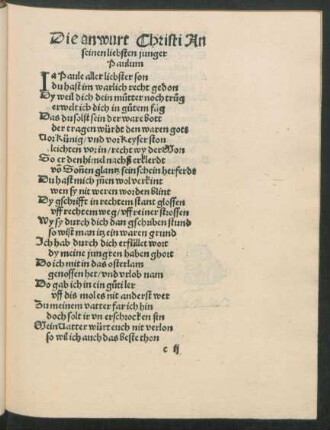 Die antwurt Christi An
seinen liebsten junger
Paulum
Ja Paule aller liebster son
du hast im warlich recht gedon
Dy weil dich dein mütter noch trüg
erwelt ich dich in gütem füg
Das du solst sein der ware bott
der tragen würdt den waren gots
Vor Künig/ vnd vor Keyser ston
leichten vor in/ recht wy der Mon
So er den himel nachß erklerdt
võ Soñen glantz sein schein herferds
Du hast mich jnen wol verkint
wen sy nit weren worden blint
Dy gschrifft in rechtem stant glossen
vff rechtem weg/ vff reiner strossen
Wy sy durch dich dan gschriben stund
so wißt man itz ein waren grund
Ich hab durch dich erfüllet wort
dy meine jungten haben ghort
Do ich mit in das osterlam
genossen het/ vnd vrlob nam
Do gab ich in ein güti ler
vff dis mol es nit anderst wer
Zu meinem vatter far ich hin
doch solt ir vnerschrocken sin
Mein Vatter würt euch nit verlon
so wil ich auch das beste thon
c ij